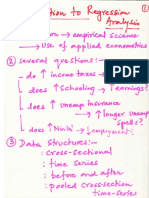 tion to Regression
Analysis
①
on → empirical science
→ Use of applied econometrics
② Several questions:-
do ↑ income taxes →
does ↑ Schooling → ↑ earnings?
does ↑ Unemp insurance
→ longer Unemp
Spells?
does ↑ Min → ↓ employment?
③ Data Structures:-
: cross-sectional
: time series
: before and after
: pooled cross-section
time-series